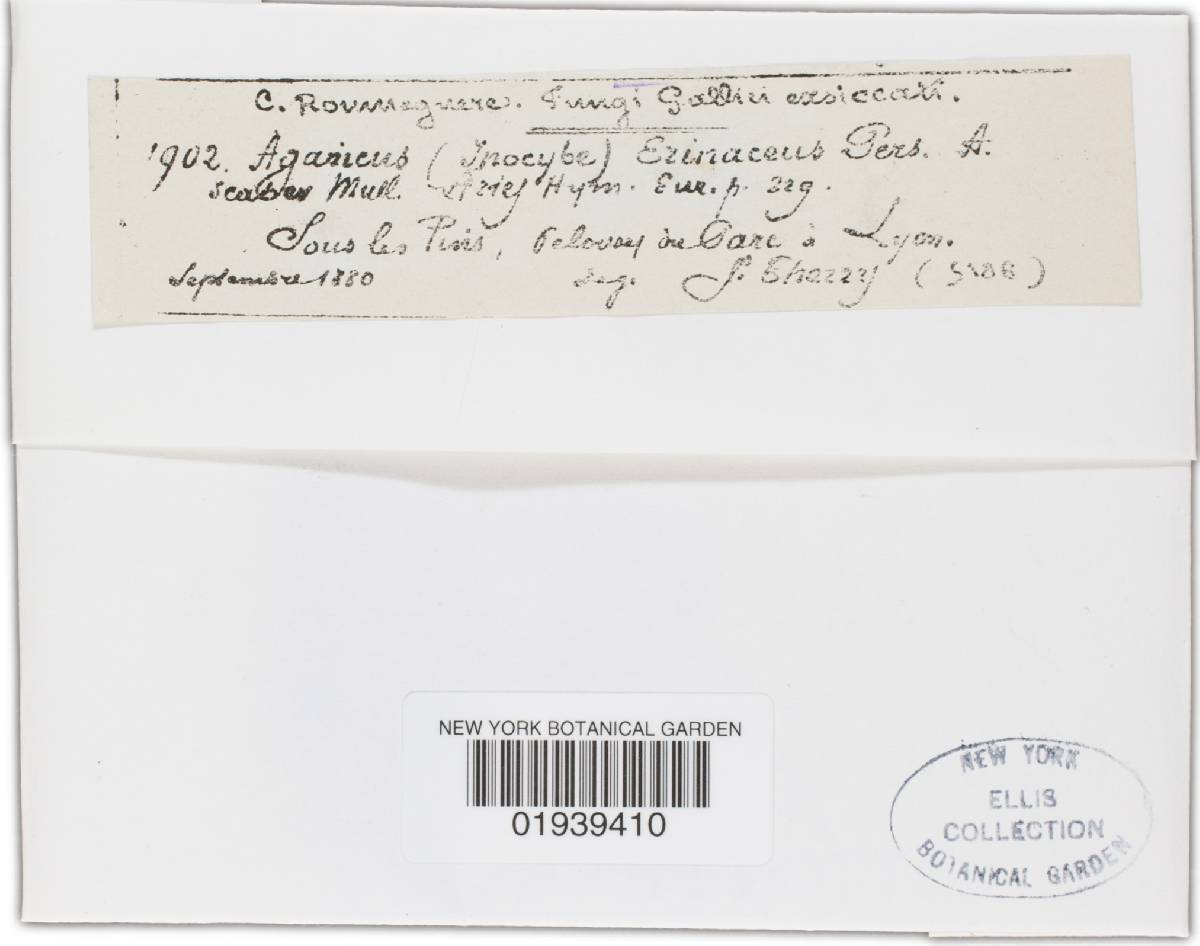 C. Roumeguere. Fungi Gallici exsiccati.
1902. Agaricus (Inocybe) Erinaceus Pers. A.
scaber Mull. Fries Hym. Eur. p. 229.
Sous les Pins, Pelouse du Parc à Lyon.
Septembre 1880 Leg. J. Therry (5186)
NEW YORK BOTANICAL GARDEN
01939410
NEW YORK
ELLIS
COLLECTION
BOTANICAL GARDEN